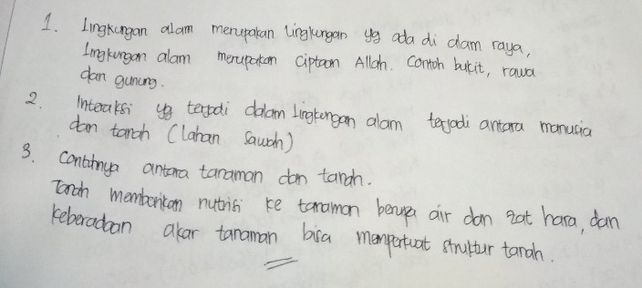 1. Lingkungan alam merupakan lingkungan yg ada di alam raya,
lingkungan alam merupakan ciptaan Allah. Contoh bukit, rawa
dan gunung.
2. Interaksi yg terjadi dalam lingkungan alam terjadi antara manusia
dan tanah (lahan sawah)
3. Contohnya antara tanaman dan tanah.
Tanah memberikan nutrisi ke tanaman berupa air dan zat hara, dan
keberadaan akar tanaman bisa memperkuat struktur tanah.